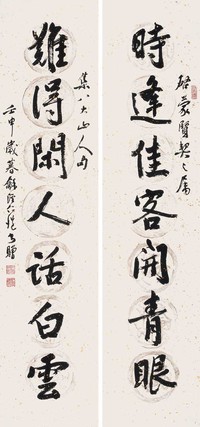 時逢佳客開青眼
啟蒙賢契之屬
難得閑人話白雲
集八大山人句
壬申歲暮